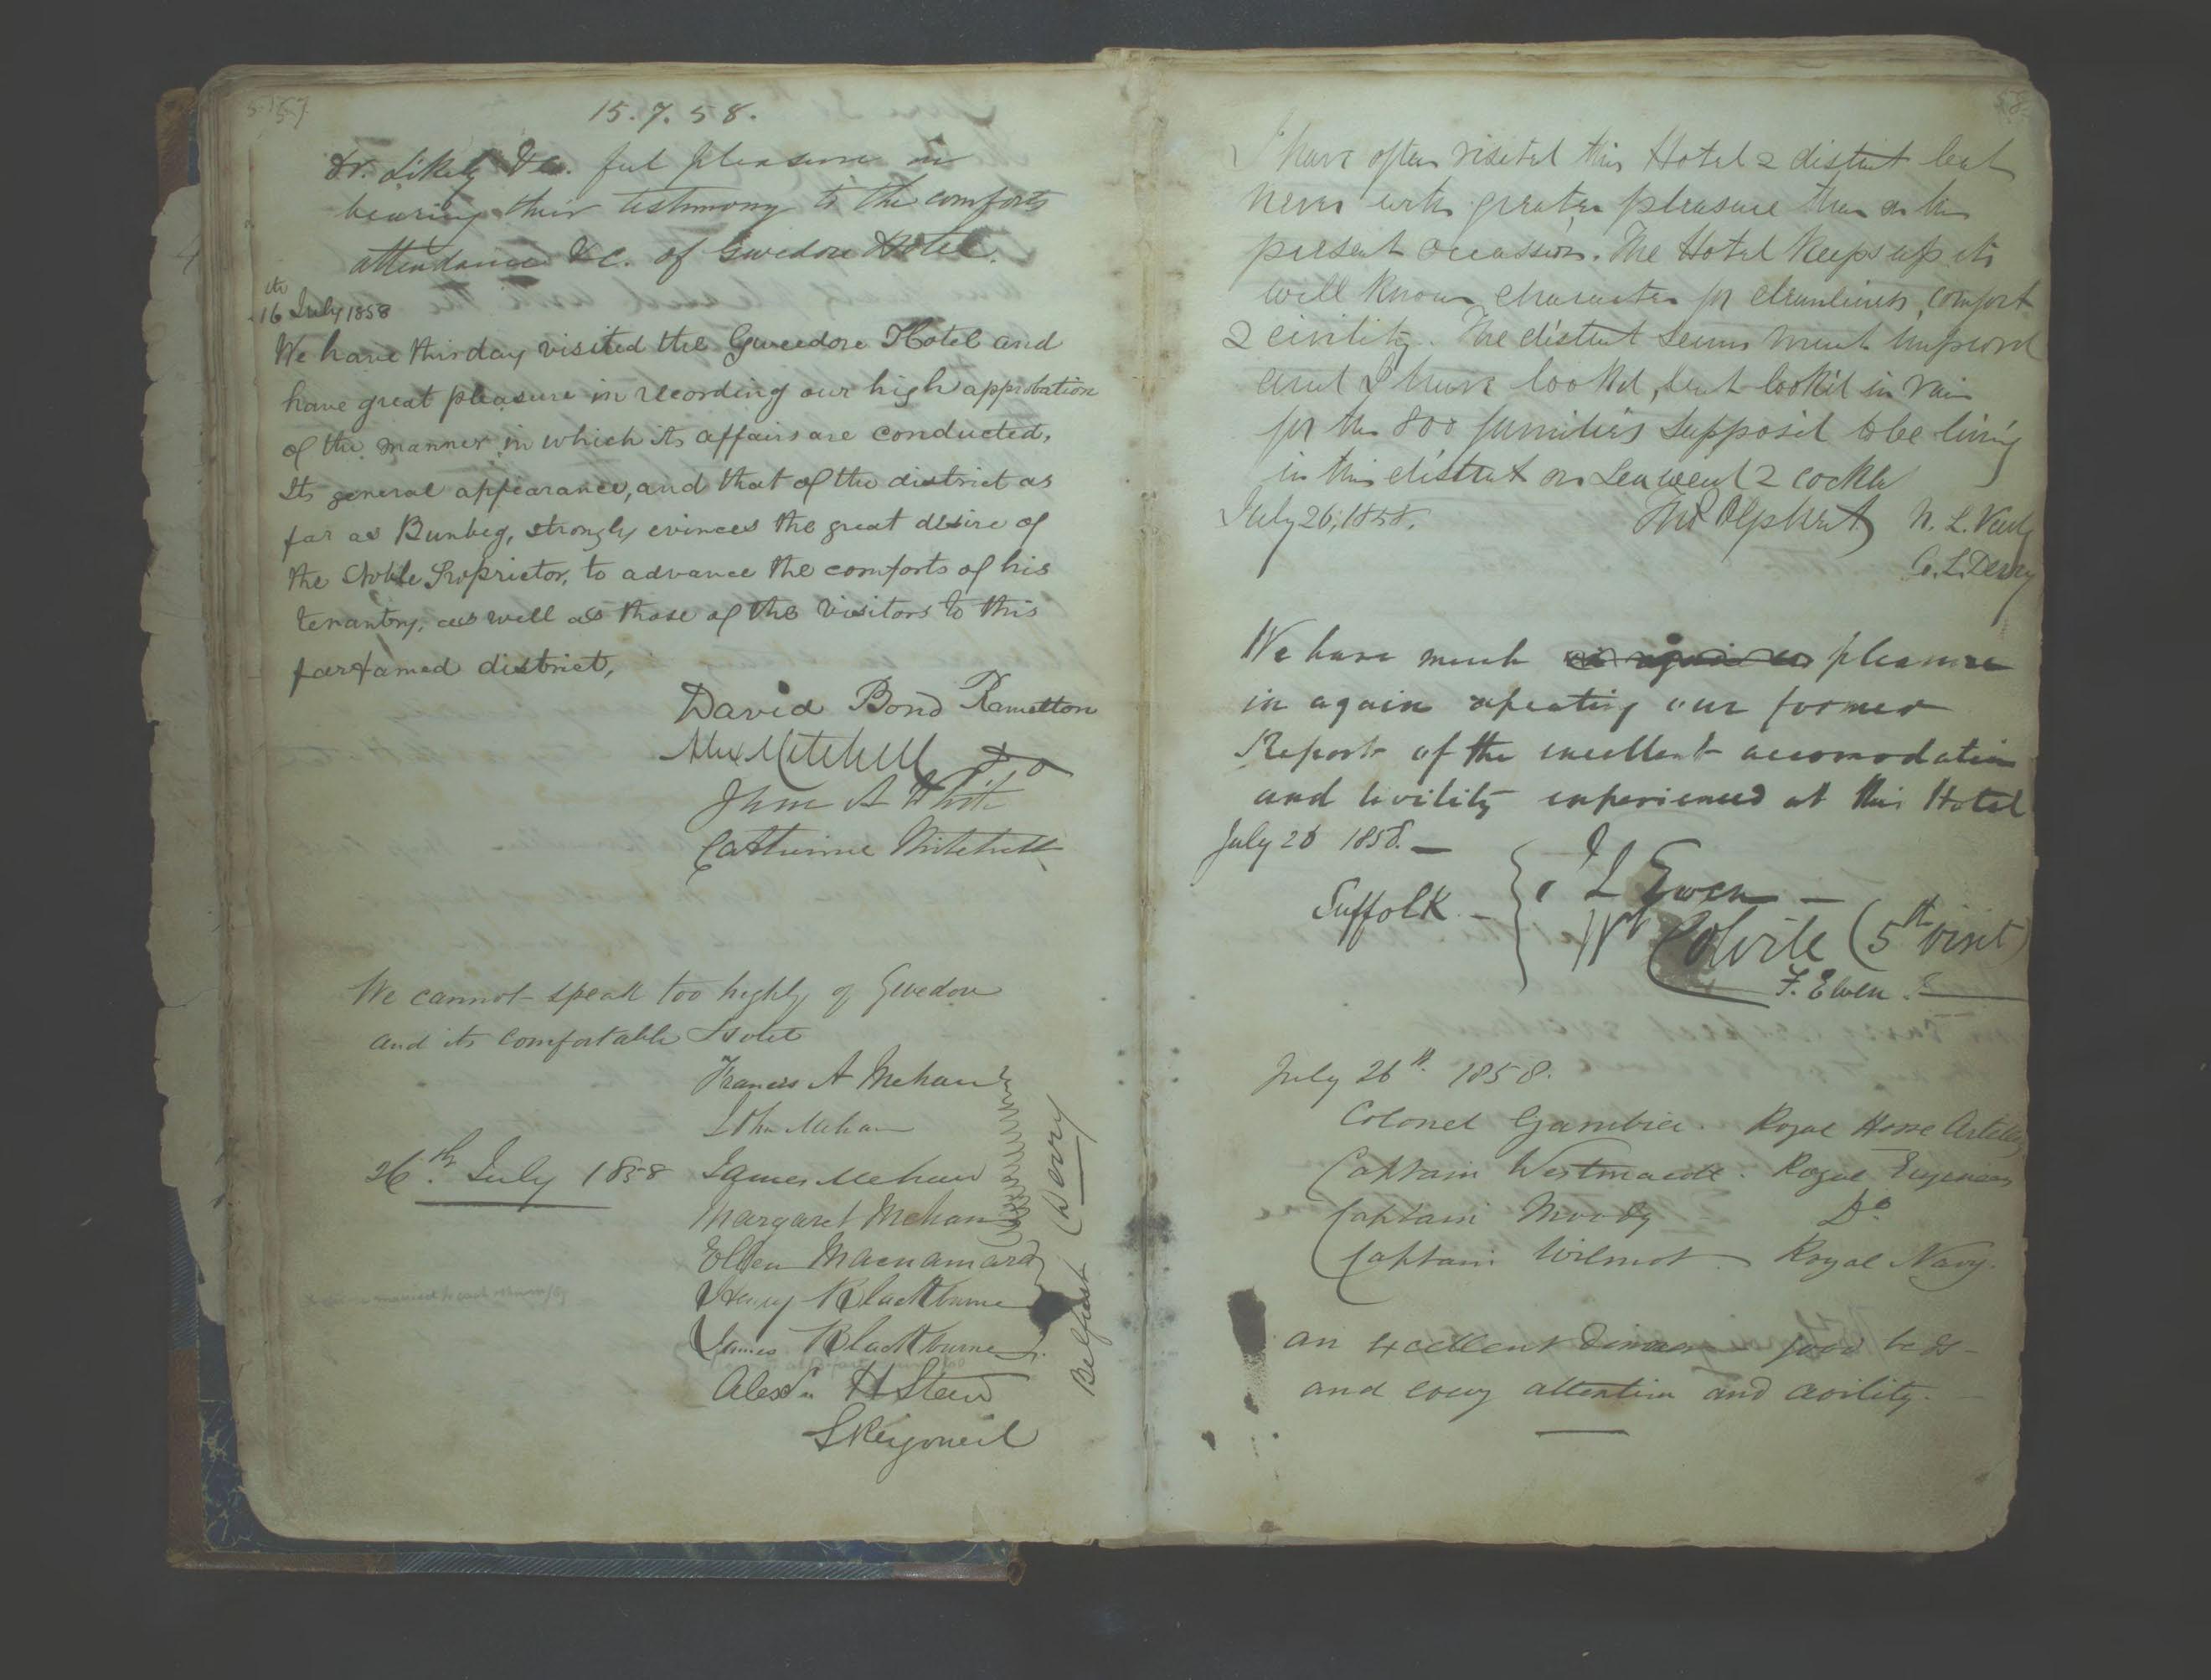 57
15.7.58.
Dr. Likely &Co. feel pleasure in
bearing their testimony to the comforts
attendance &c. of Gweedore Hotel.
16th July 1858
We have this day visited the Gweedore Hotel and
have great pleasure in recording our high approbation
of the manner in which its affairs are conducted,
Its general appearance, and that of the district as
far as Bunbeg, strongly evinces the great desire of
the Noble Proprietor, to advance the comforts of his
tenantry, as well as those of the Visitors to this
farfamed district,
David Bond Ramelton
Alex Mitchell Do
John A White
Catherine Mitchell
We cannot speak too highly of Gweedore
and its comfortable Hotel
Francis A Mehan
John Mehan
26th July 1858 James Mehan
Margaret Mehan
Ellen Macnamara
Henry Blackburne
James Blackburne Jr.
Alexdr H Stew
Belfast Derry
58
I have often visited this Hotel & district but
never with greater pleasure than on the
present occassion. The Hotel keeps up its
well known character for cleanliness, comfort
& civility. The district seems much improved
and I have look'd, but look'd in vain
for the 800 families supposed to be living
in this district on seaweed & cockle
July 26, 1858. Thos Olphert
C. L. Derry
We have much pleasure
in again repeating our former
Report of the excellent accomodation
and civility experienced at this Hotel
July 26 1858. —
Suffolk - J L Ewen —
Wm Colvile (5th visit)
F. Ewen
July 26th. 1858.
Colonel Gambier. Royal Horse Artillery
Captain Westmacott. Royal Engineers
Captain Moody Do
Captain Wilmot. Royal Navy.
an excellent dinner good beds -
and every attention and civility.